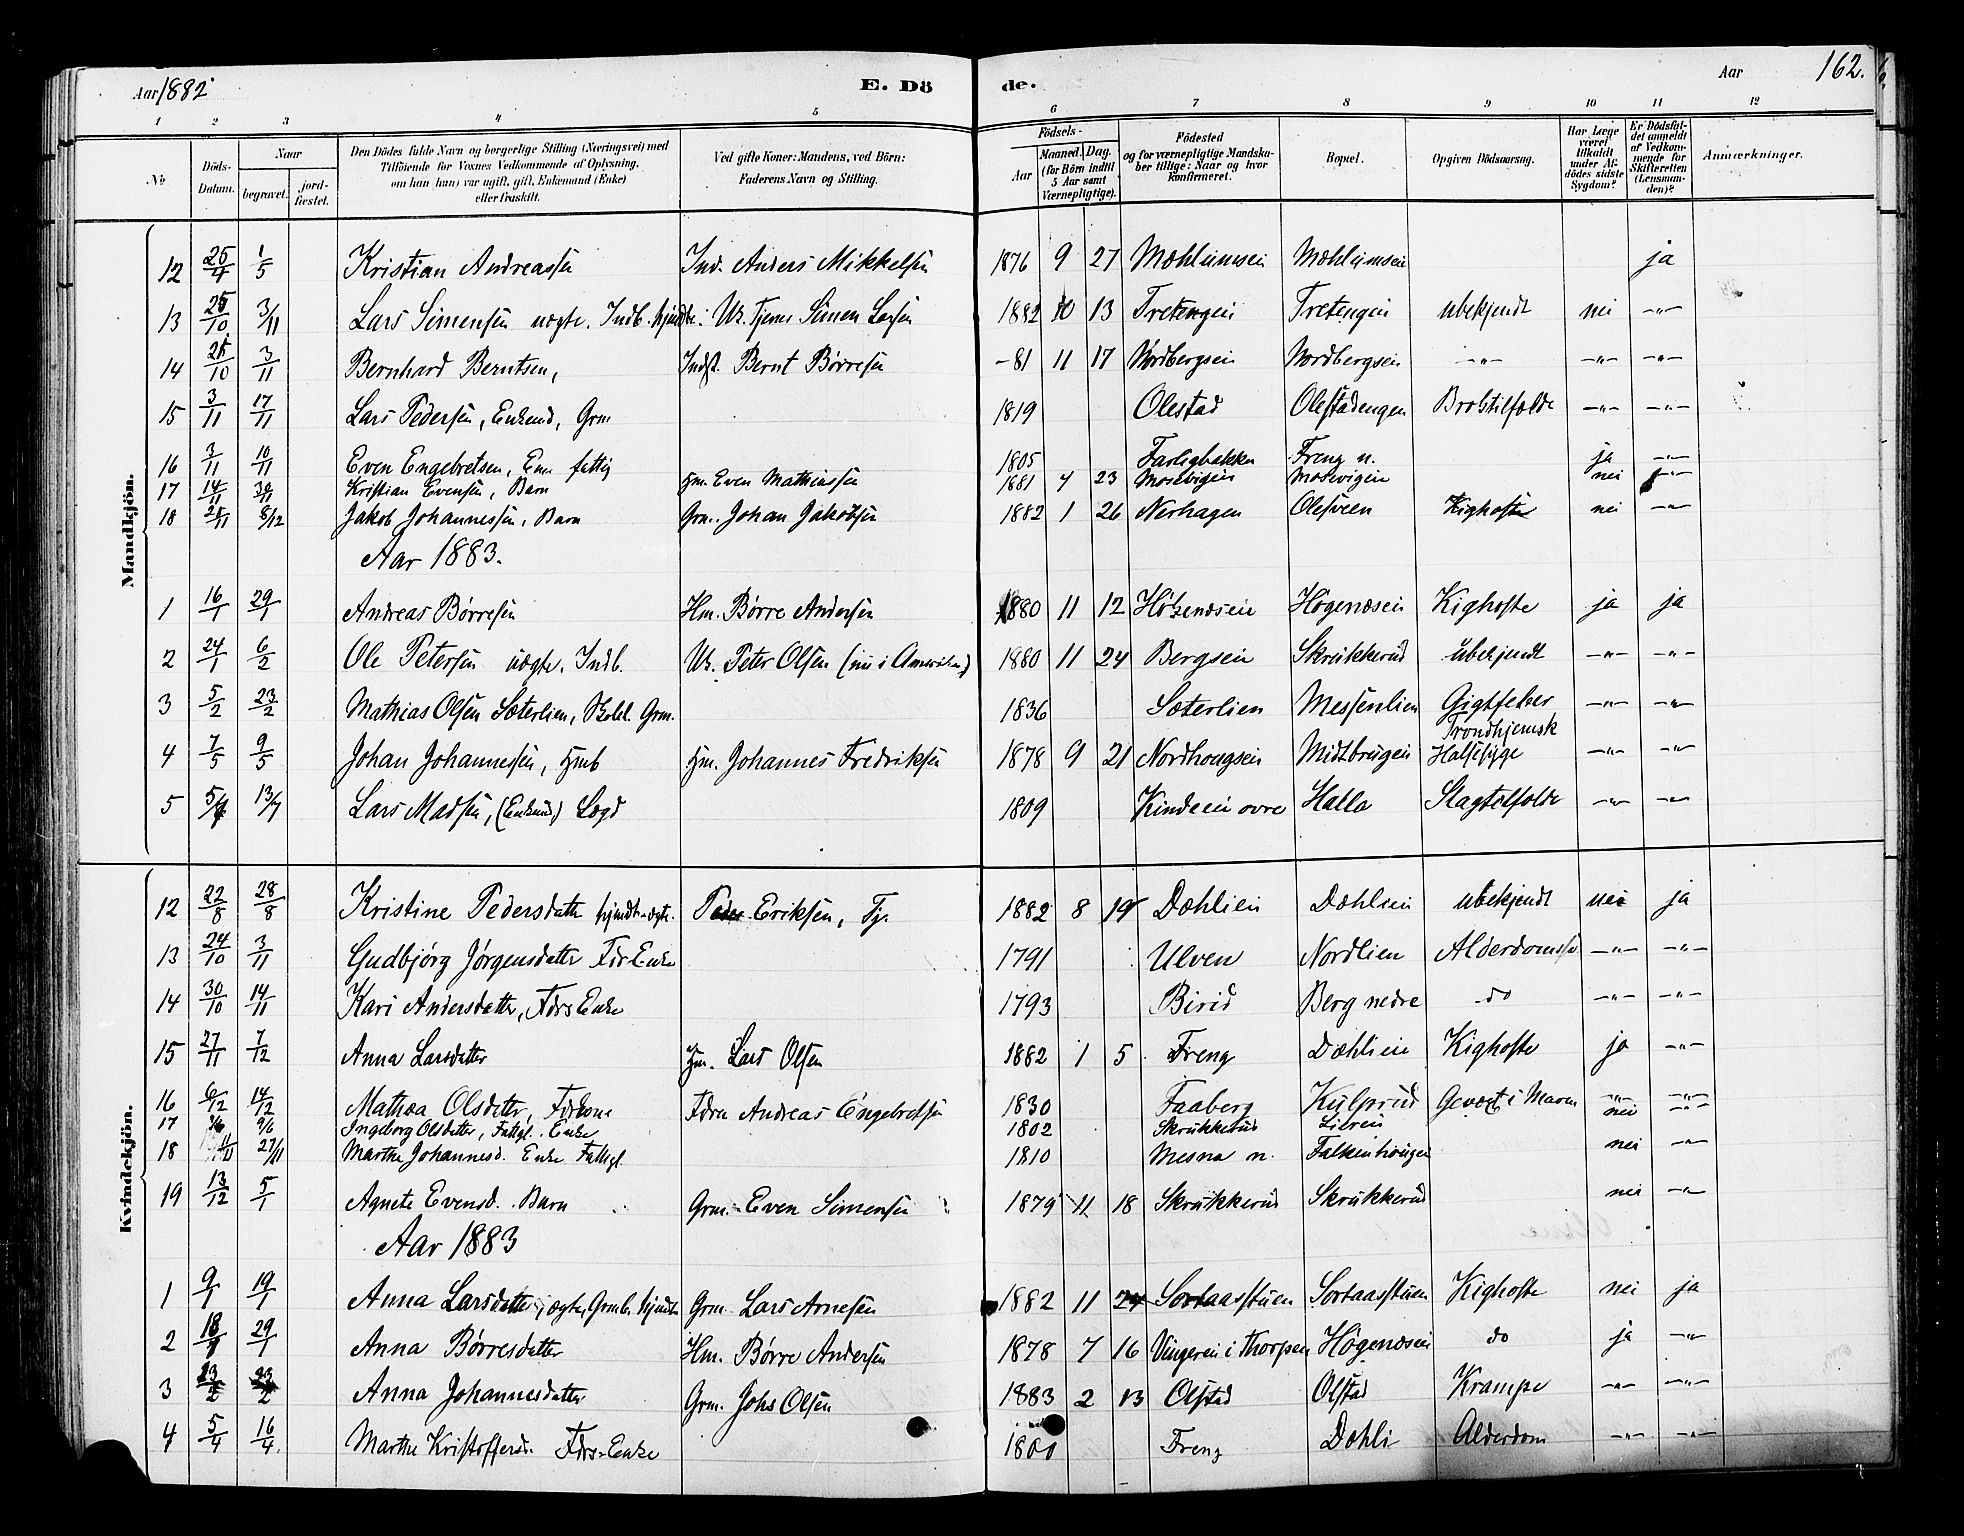 Aar 1882
E. Dö
de.
Aar 162.
1 2 3 4 5 6 7 8 9 10 11 12
No
Döds-Datum.
Naar
begravet.
jord-fæstet.
Den Dödes fulde Navn og borgerlige Stilling (Næringsvei) med
Tilföiende for Voxnes Vedkommende af Oplysning,
om han (hun) var ugift, gift, Enkemand (Enke)
eller fraskilt.
Ved gifte Koner: Mandens, ved Börn:
Faderens Navn og Stilling.
Födsels-
Aar
Maaned. Dag.
(for Börn indtil
5 Aar samt
Værnepligtige).
Födested
og for værnepligtige Mandska-
ber tillige: Naar og hvor
konfirmeret.
Bopæl.
Opgiven Dödsaarsag.
Har Læge
været
tilkaldt
under Af-
dödes sidste
Sygdom?
Er Dödsfal-
det anmeldt
af Vedkom-
mende for
Skifteretten
(Lensman-
den)?
Anmærkninger.
Mandkjön.
12 25/4 1/5 Kristian Andreassen Ind. Anders Mikkelsen 1876 9 27 Mæhlumsei Mæhlumseie ja
13 25/10 3/11 Lars Simensen uægte. Indb. hjemdbt. Uk. Tjener Simen Larsen 1882 10 13 Tretengei Tretengei ubekjendt nei -"-
14 21/10 3/11 Bernhard Berntsen, Indst. Bernt Børresen -81 11 17 Nordbergsei Nordbergsei -"- -"- -"-
15 3/11 17/11 Lars Pedersen, Enkemd, Grm 1819 Olestad Olestadengen Brobstilfælde -"- -"-
16 3/11 10/11 Even Engebretsen, Enm fattig 1805 Farligbakken Freng n. ja -"-
17 14/11 30/11 Kristian Evensen, Barn Hm. Even Mathiassen 1881 4 23 Mosevigen Mosevigen nei -"-
18 25/11 8/12 Jakob Johannessen, Barn Grm. Johan Jakobsen 1882 1 26 Nerhagen Olesveen Kighoste nei -"-
Aar 1883.
1 16/1 29/1 Andreas Børresen Hm. Børre Andersen 1880 11 12 Høgenæseie Høgenæseie Kighoste ja ja
2 24/1 6/2 Ole Petersen uægte. Indb. Uk. Peter Olsen (nu i Amerika) 1880 11 24 Bergseie Skrukkerud ubekjendt -"- -"-
3 5/2 23/2 Mathias Olsen Sæterlien, Grm. 1836 Sæterlien Messenlien Gigtfeber -"- -"-
4 7/5 9/5 Johan Johannessen, Hmb Hm. Johannes Fredriksen 1878 9 21 Nordhougsei Midtbrugei Trondhjemsk Halssyge -"- -"-
5 13/7 Lars Madsen, (Enkemd) Lægd 1809 Kindseie øvre Halla Slagtilfælde -"- -"-
Kvindekjön.
12 22/8 28/8 Kristine Pedersdatter hjemdbt uægte. Peder Eriksen, Tj. 1882 8 19 Dæhlien Dæhlien ubekjendt nei ja
13 24/10 3/11 Gudbjørg Jørgensdatter Fdr Enke 1791 Ulven Nordlien Alderdomssv -"- -"-
14 30/10 14/11 Kari Andersdatter, Fdrs Enke 1793 Birid Berg nedre do -"- -"-
15 27/11 7/12 Anna Larsdatter Hm. Lars Olsen 1882 1 5 Freng Dæhlien Kighoste ja -"-
16 6/12 14/12 Mathea Olsdatter, Fdrkone Fdrm Andreas Engebretsen 1830 Faaberg Kulsrud Gevæxt i Maven -"- -"-
17 9/6 Ingeborg Olsdatter, Fattigl. Enke 1802 Skrukkerud Lilveie nei -"-
18 27/11 Marthe Johannesd. Enke Fattigl 1810 Mesna n. Falkenhougen nei -"-
19 13/12 5/1 Agnete Evensd. Barn Grm. Even Simensen 1879 11 18 Skrukkerud Skrukkerud nei -"-
Aar 1883
1 9/1 19/1 Anna Larsdatter, ægte, Grmb. hjemdbt Grm Lars Arnesen 1882 11 24 Sortaasstuen Sortaasstuen Kighoste nei ja
2 18/1 29/1 Anna Børresdatter Hm. Børre Andersen 1878 7 16 Vingereie i Thorpen Høgenæseie do ja -"-
3 23/2 Anna Johannesdatter Grm. Johs Olsen 1883 2 13 Olstad Olstad Krampe -"- -"-
4 5/4 16/4 Marthe Kristoffersd. Fdrs-Enke 1800 Freng Dæhli Alderdom -"- -"-